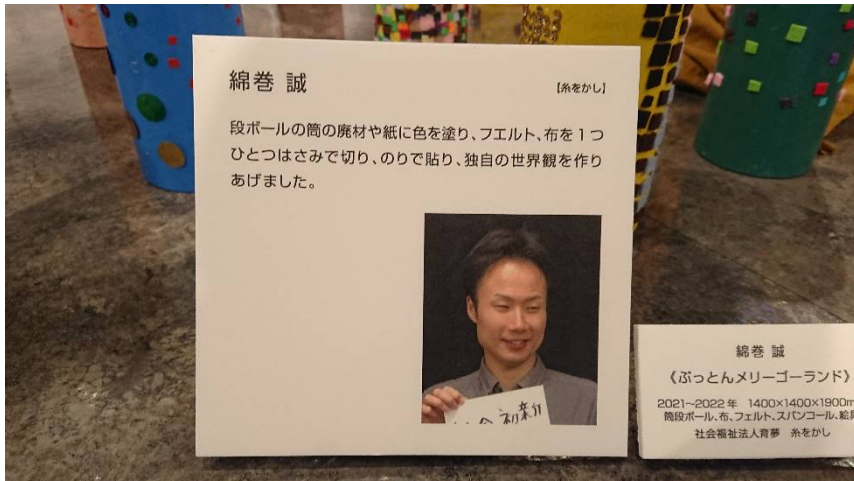 綿巻 誠
【糸をかし】
段ボールの筒の廃材や紙に色を塗り、フエルト、布を1つ
ひとつはさみで切り、のりで貼り、独自の世界観を作り
あげました。
綿巻 誠
《ぷっとんメリーゴーランド》
2021~2022年 1400×1400×1900m
筒段ボール、布、フェルト、スパンコール、絵具
社会福祉法人育夢 糸をかし